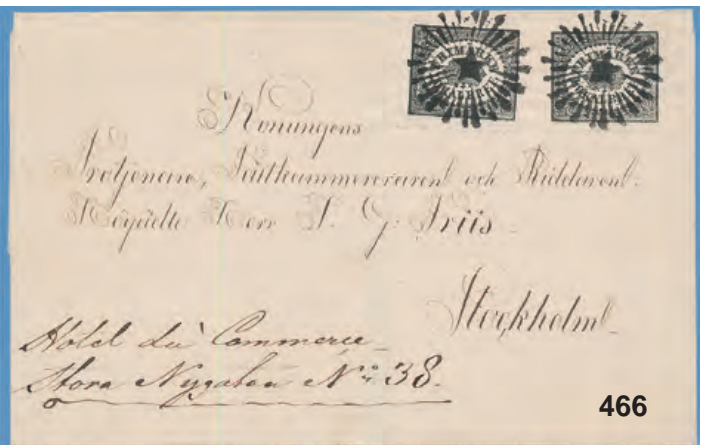 Konungens
Trotjenare, Kammereraren och Riddaren
Högädle Herr J. G. Friis
Stockholm
Hotel du Commerce
Stora Nygatan No 38.
466